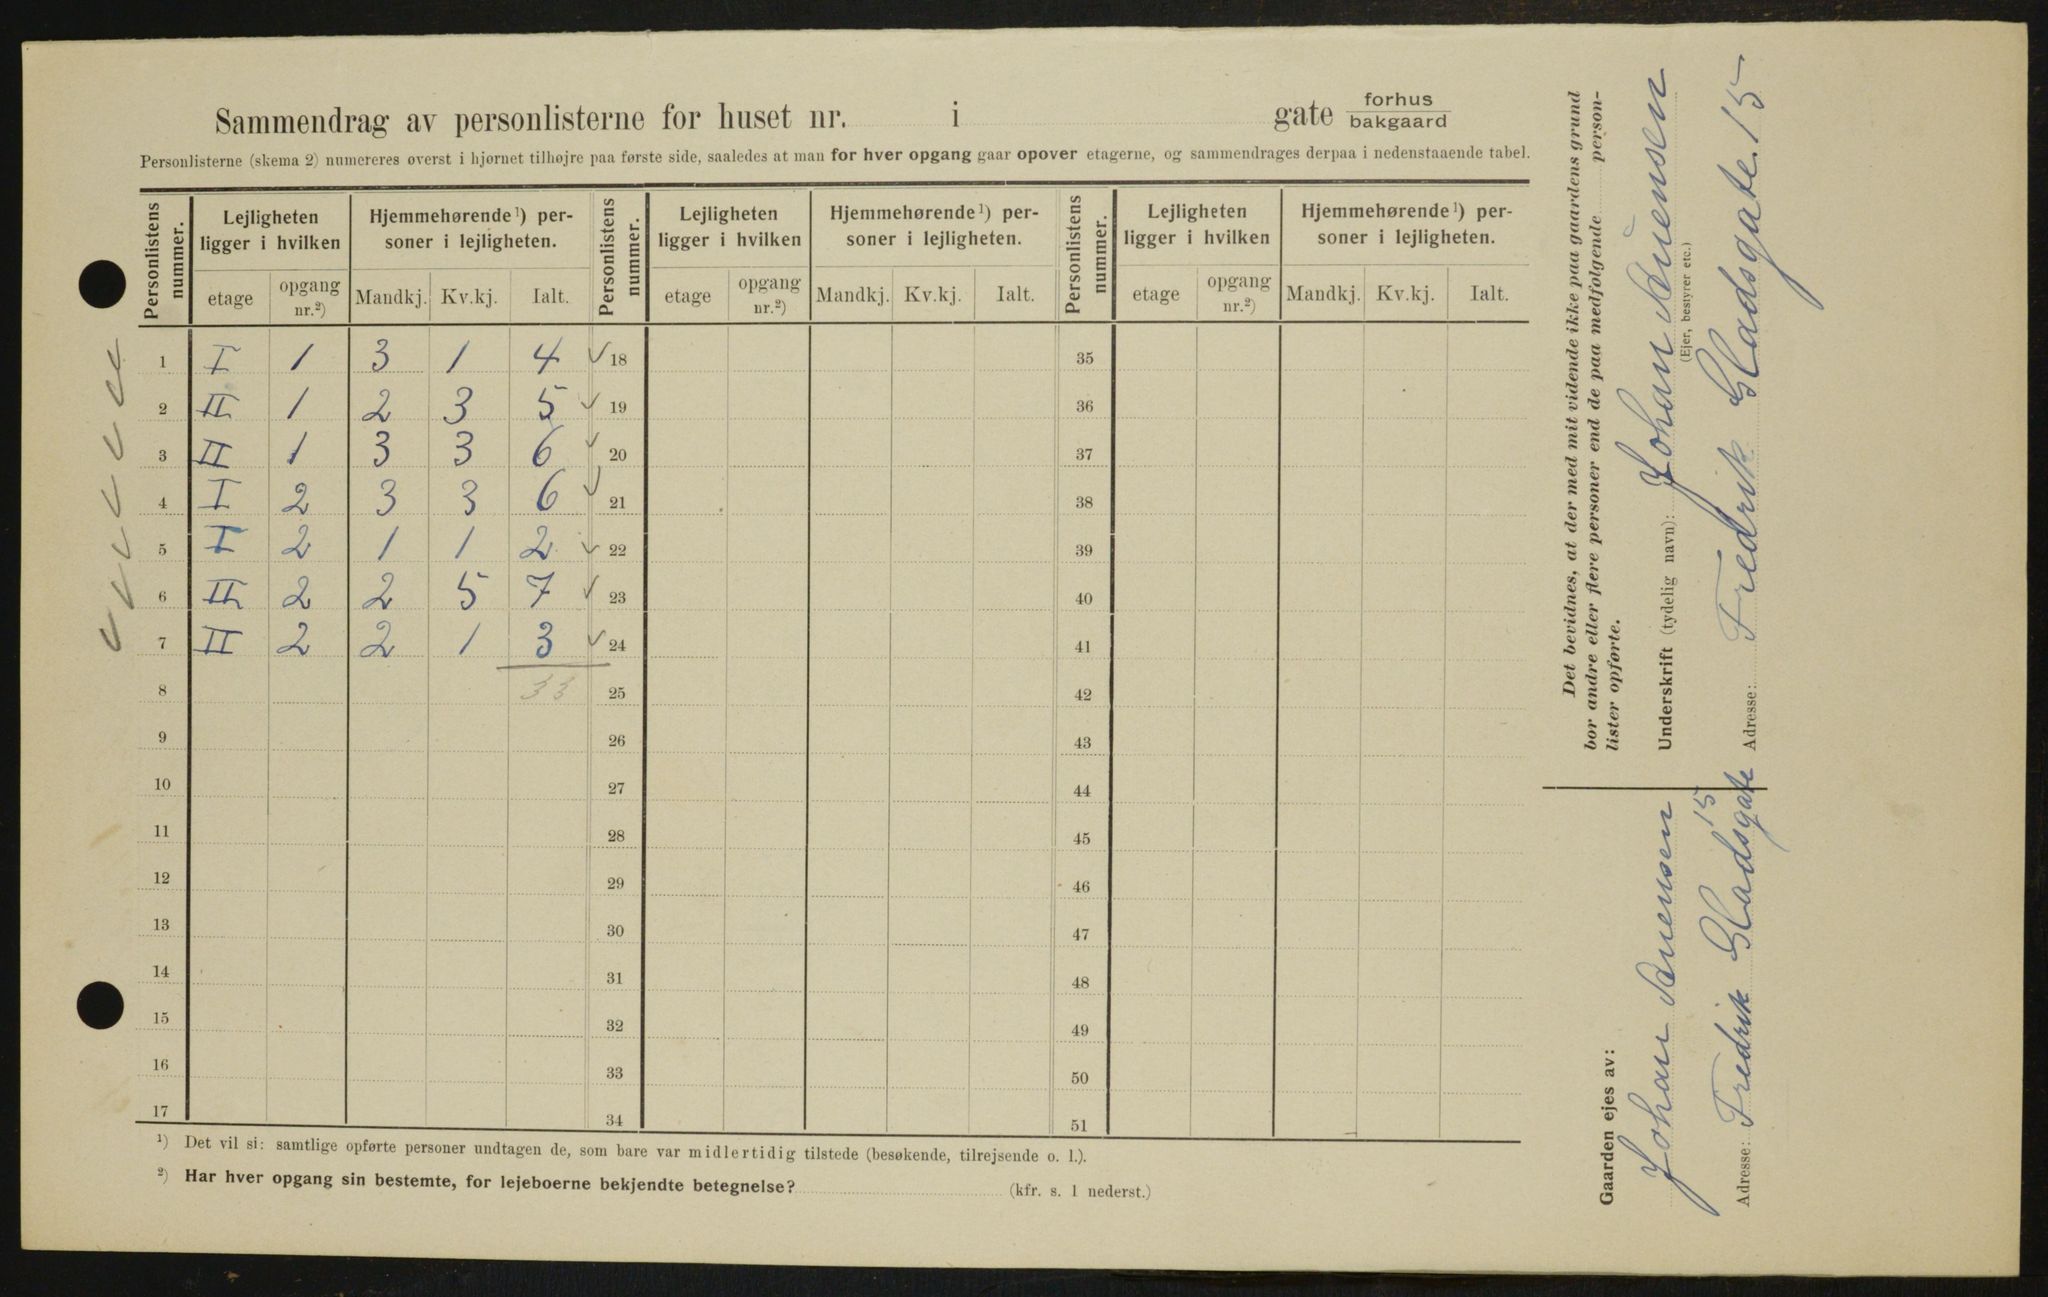 Sammendrag av personlisterne for huset nr. i gate forhus bakgaard
Personlisterne (skema 2) numereres øverst i hjørnet tilhøjre paa første side, saaledes at man for hver opgang gaar opover etagerne, og sammendrages derpaa i nedenstaaende tabel.
Personlistens nummer. Lejligheten ligger i hvilken Hjemmehørende ¹) personer i lejligheten. Personlistens nummer. Lejligheten ligger i hvilken Hjemmehørende ¹) personer i lejligheten. Personlistens nummer. Lejligheten ligger i hvilken Hjemmehørende ¹) personer i lejligheten.
etage opgang nr.²) Mandkj. Kv.kj. Ialt. etage opgang nr.²) Mandkj. Kv.kj. Ialt. etage opgang nr.²) Mandkj. Kv.kj. Ialt.
1 I 1 3 1 4 18 35
2 II 1 2 3 5 19 36
3 II 1 3 3 6 20 37
4 I 2 3 3 6 21 38
5 I 2 1 1 2 22 39
6 II 2 2 5 7 23 40
7 II 2 2 1 3 24 41
8 33 25 42
9 26 43
10 27 44
11 28 45
12 29 46
13 30 47
14 31 48
15 32 49
16 33 50
17 34 51
¹) Det vil si: samtlige opførte personer undtagen de, som bare var midlertidig tilstede (besøkende, tilrejsende o. l.).
²) Har hver opgang sin bestemte, for lejeboerne bekjendte betegnelse? (kfr. s. 1 nederst.)
Det bevidnes, at der med mit vidende ikke paa gaardens grund
bor andre eller flere personer end de paa medfølgende person-
lister opførte.
Underskrift (tydelig navn): Johan
(Ejer, bestyrer etc.)
Adresse: Fredrik Gladsgate. 15
Gaarden ejes av:
Johan
15
Adresse: Fredrik Gladsgate